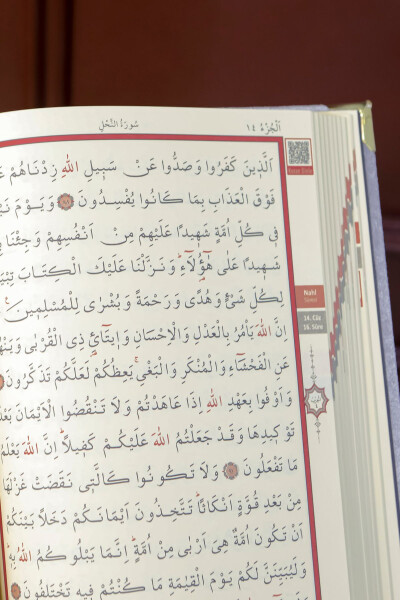 اَلْجُزْءُ ١٤
سُورَةُ النَّحْلِ
اَلَّذ۪ينَ كَفَرُوا وَصَدُّوا عَنْ سَب۪يلِ اللّٰهِ زِدْنَاهُمْ
فَوْقَ الْعَذَابِ بِمَا كَانُوا يُفْسِدُونَ ﴿٨٨﴾ وَيَوْمَ
ف۪ي كُلِّ اُمَّةٍ شَه۪يدًا عَلَيْهِمْ مِنْ اَنْفُسِهِمْ وَجِئْنَا
شَه۪يدًا عَلٰى هٰٓؤُ۬لَٓاءِۜ وَنَزَّلْنَا عَلَيْكَ الْكِتَابَ
لِكُلِّ شَيْءٍ وَهُدًى وَرَحْمَةً وَبُشْرٰى لِلْمُسْلِم۪ينَ
اِنَّ اللّٰهَ يَأْمُرُ بِالْعَدْلِ وَالْاِحْسَانِ وَا۪يتَٓائِ ذِي الْقُرْبٰى
عَنِ الْفَحْشَٓاءِ وَالْمُنْكَرِ وَالْبَغْيِۚ يَعِظُكُمْ لَعَلَّكُمْ تَذَكَّرُونَ
وَاَوْفُوا بِعَهْدِ اللّٰهِ اِذَا عَاهَدْتُمْ وَلَا تَنْقُضُوا الْاَيْمَانَ
تَوْك۪يدِهَا وَقَدْ جَعَلْتُمُ اللّٰهَ عَلَيْكُمْ كَف۪يلًاۜ اِنَّ اللّٰهَ يَعْلَمُ
مَا تَفْعَلُونَ ﴿٩١﴾ وَلَا تَكُونُوا كَالَّت۪ي نَقَضَتْ غَزْلَهَا
مِنْ بَعْدِ قُوَّةٍ اَنْكَاثًاۜ تَتَّخِذُونَ اَيْمَانَكُمْ دَخَلًا بَيْنَكُمْ
اَنْ تَكُونَ اُمَّةٌ هِيَ اَرْبٰى مِنْ اُمَّةٍۜ اِنَّمَا يَبْلُوكُمُ اللّٰهُ بِه۪ۜ
وَلَيُبَيِّنَنَّ لَكُمْ يَوْمَ الْقِيٰمَةِ مَا كُنْتُمْ ف۪يهِ تَخْتَلِفُونَ
Nahl
Suresi
14. Cüz
16. Sûre